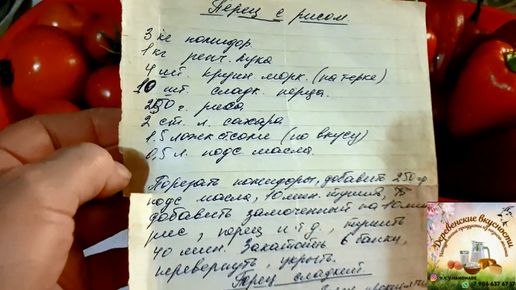 Перец с рисом
3 кг помидор
1 кг репч. лука
4 шт. крупн морк. (на терке)
10 шт. сладк. перца.
250 г. риса
2 ст. л. сахара
1.5 ложек соли (по вкусу)
0,5 л. подс. масла.
Порезать помидоры, добавить 250 гр
подс масла, 10 мин. тушить,
добавить замоченный на 10 мин
рис, перец и т д, тушить
40 мин. Закатать в банки,
перевернуть, укрыть.
Перец сладкий
Деревенские вкусности